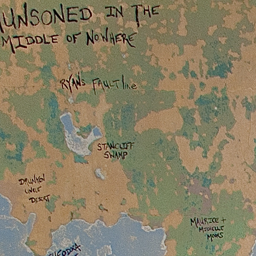 UNSONED IN THE
MIDDLE OF NOWHERE
RYANS FAULT LINE
STANCLIFF
SWAMP
DRUNKEN
UNCLE
DESERT
MAURICE +
MICHELLE
MOORS